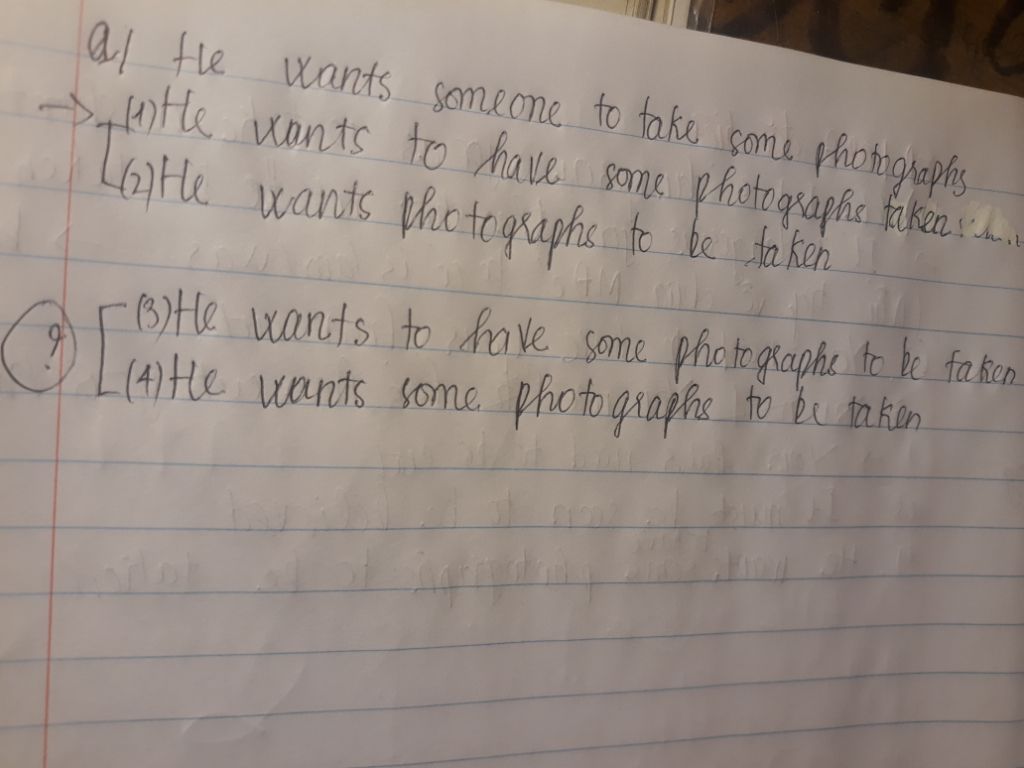 a/ He wants someone to take some photographs
→ (1) He wants to have some photographs taken
(2) He wants photographs to be taken
? (3) He wants to have some photographs to be taken
(4) He wants some photographs to be taken